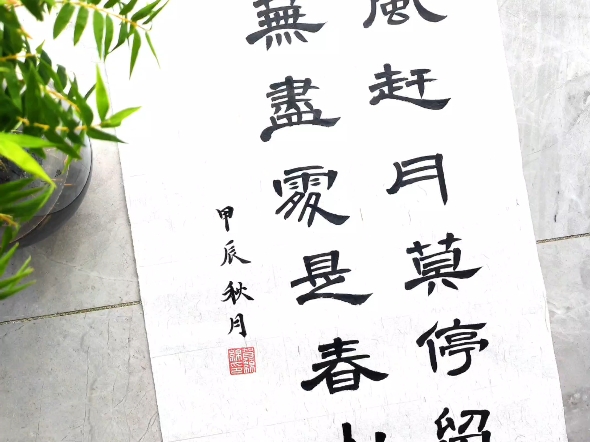 風赶月莫停留
蕪盡處是春
甲辰秋月